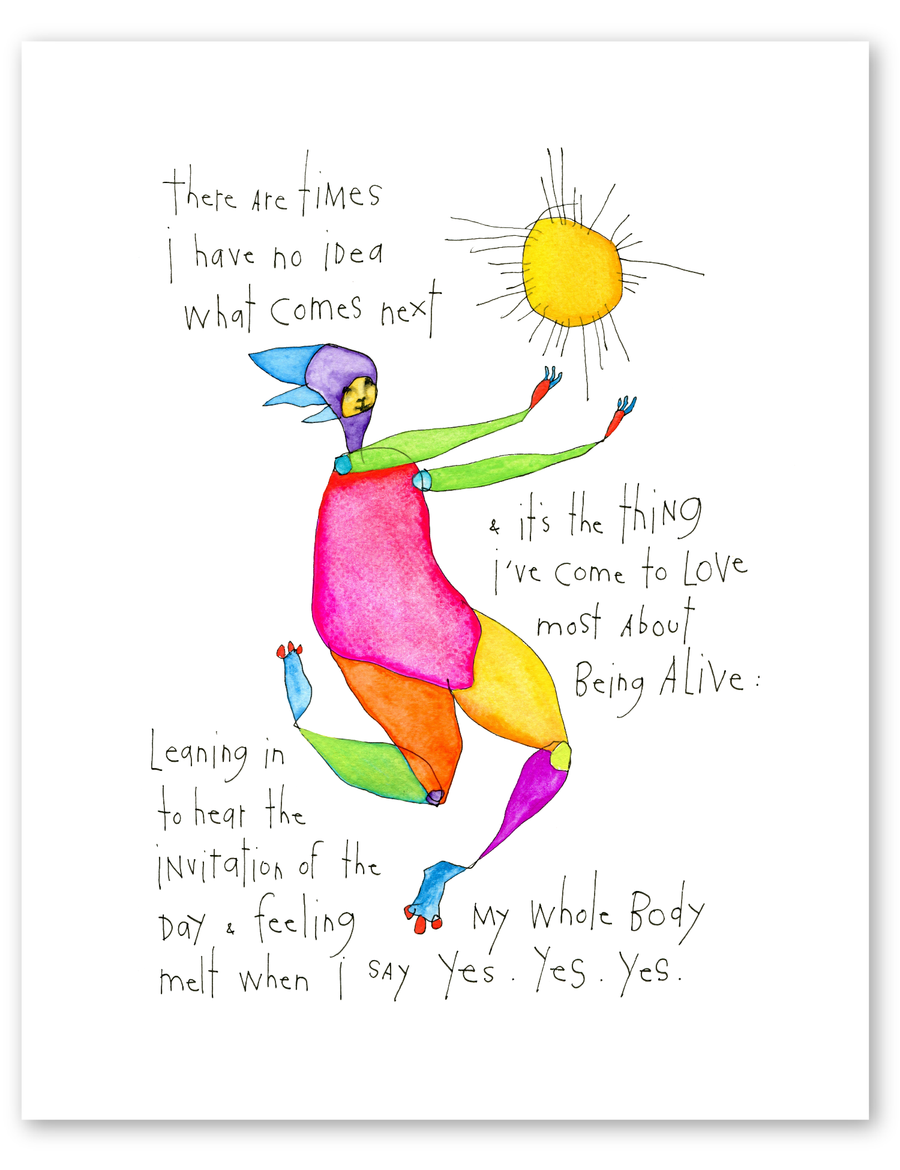 there are times
i have no idea
what comes next
& it's the thing
i've come to Love
most about
Being Alive:
Leaning in
to hear the
invitation of the
day & feeling my whole Body
melt when i say yes. yes. yes.